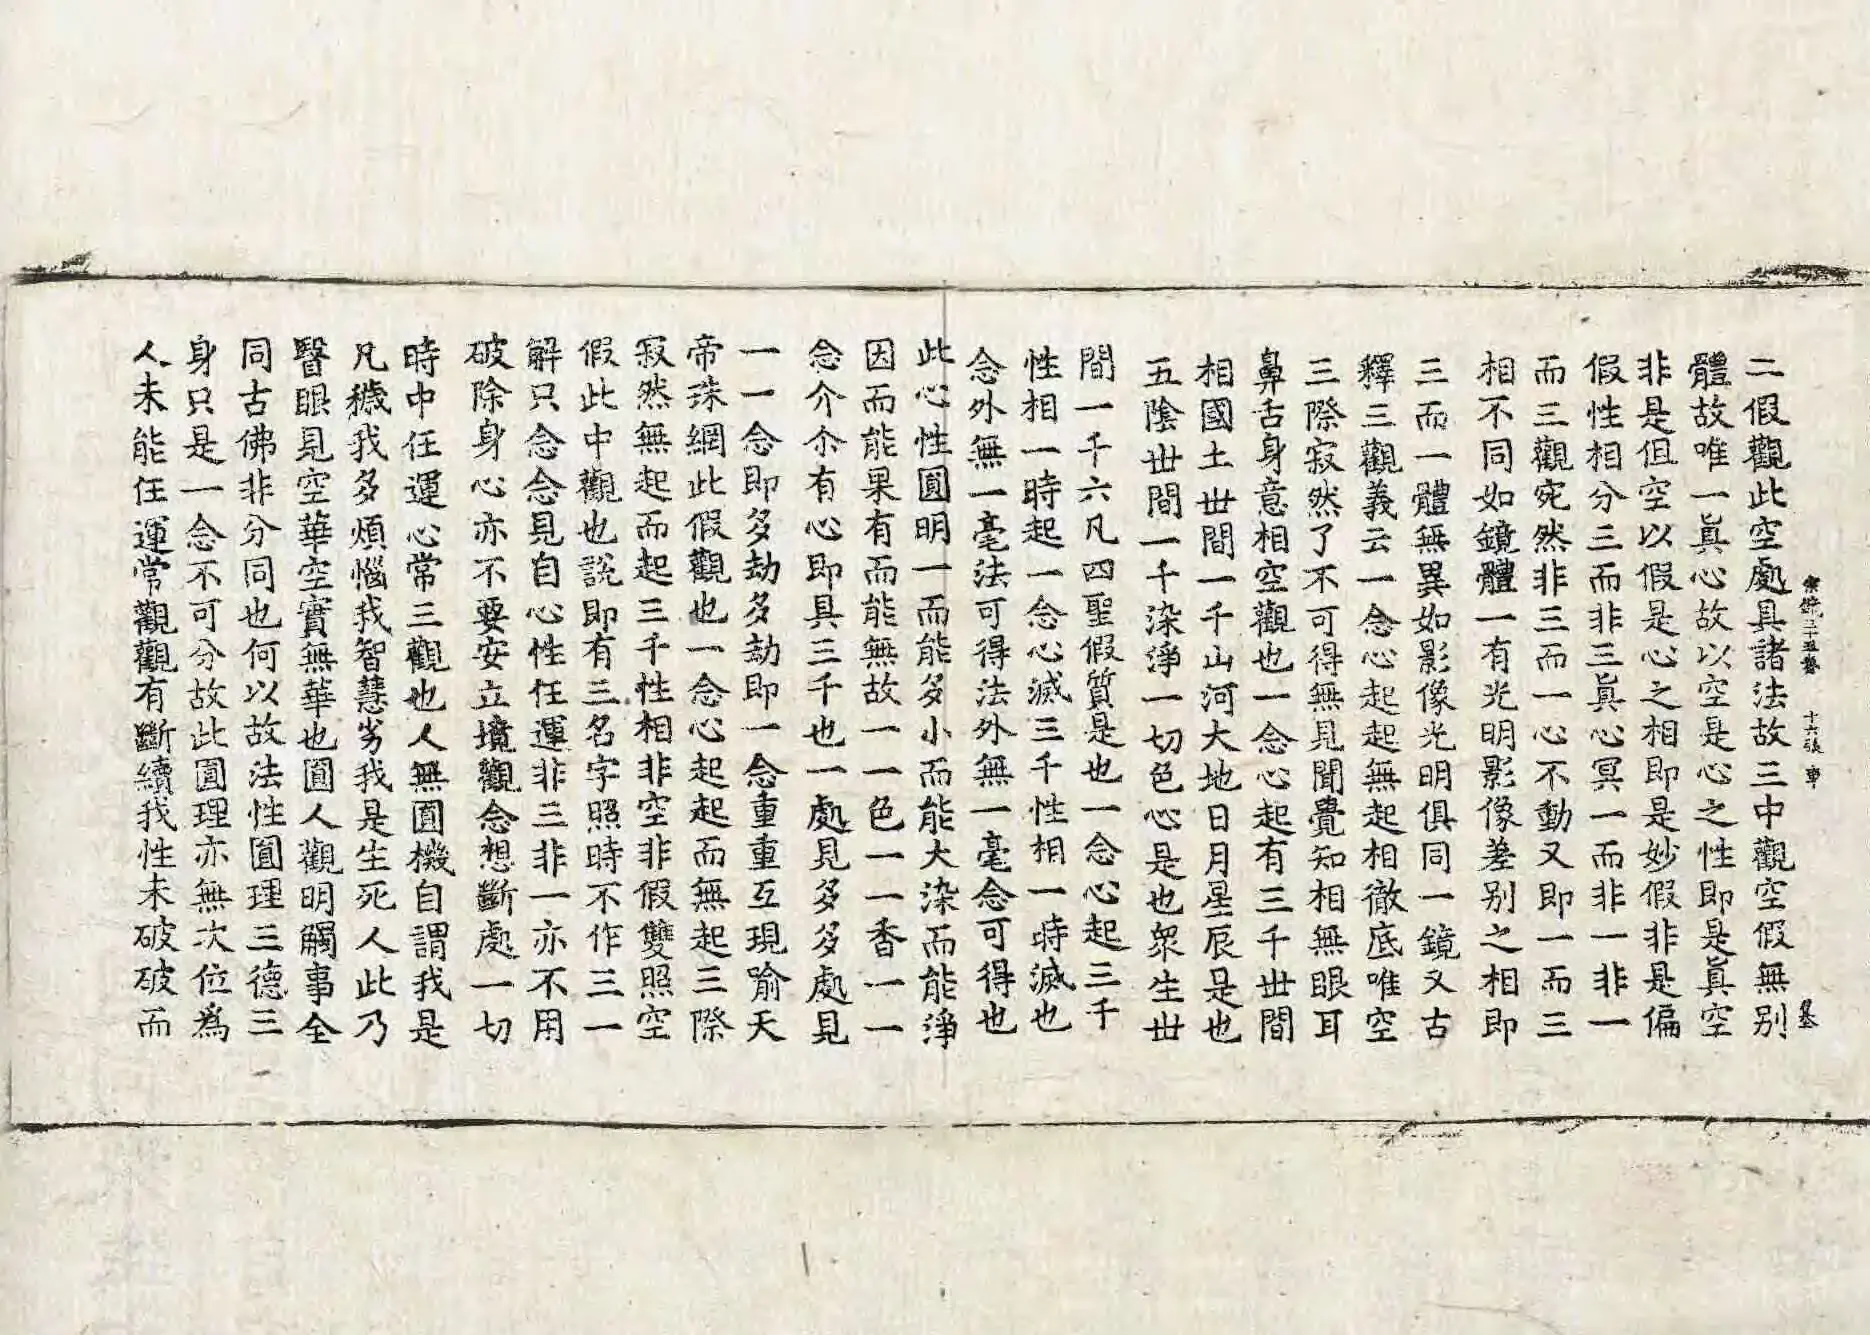 宗鏡三十五卷 十六張 車
二假觀此空處具諸法故三中觀空假無別
體故唯一眞心故以空是心之性即是眞空
非是但空以假是心之相即是妙假非是偏
假性相分三而非三眞心冥一而非一非一
而三觀宛然非三而一心不動又即一而三
相不同如鏡體一有光明影像差別之相即
三而一體無異如影像光明俱同一鏡又古
釋三觀義云一念心起起無起相徹底唯空
三際寂然了不可得無見聞覺知相無眼耳
鼻舌身意相空觀也一念心起有三千世間
相國土世間一千山河大地日月星辰是也
五陰世間一千染淨一切色心是也眾生世
間一千六凡四聖假質是也一念心起三千
性相一時起一念心滅三千性相一時滅也
念外無一毫法可得法外無一毫念可得也
此心性圓明一而能多小而能大染而能淨
因而能果有而能無故一一色一一香一一
念介尒有心即具三千也一處見多多處見
一一念即多劫多劫即一念重重互現喻天
帝珠網此假觀也一念心起起而無起三際
寂然無起而起三千性相非空非假雙照空
假此中觀也說即有三名字照時不作三一
解只念念見自心性任運非三非一亦不用
破除身心亦不要安立境觀念想斷處一切
時中任運心常三觀也人無圓機自謂我是
凡穢我多煩惱我智慧劣我是生死人此乃
瞖眼見空華空實無華也圓人觀明觸事全
同古佛非分同也何以故法性圓理三德三
身只是一念不可分故此圓理亦無次位爲
人未能任運常觀觀有斷續我性未破破而